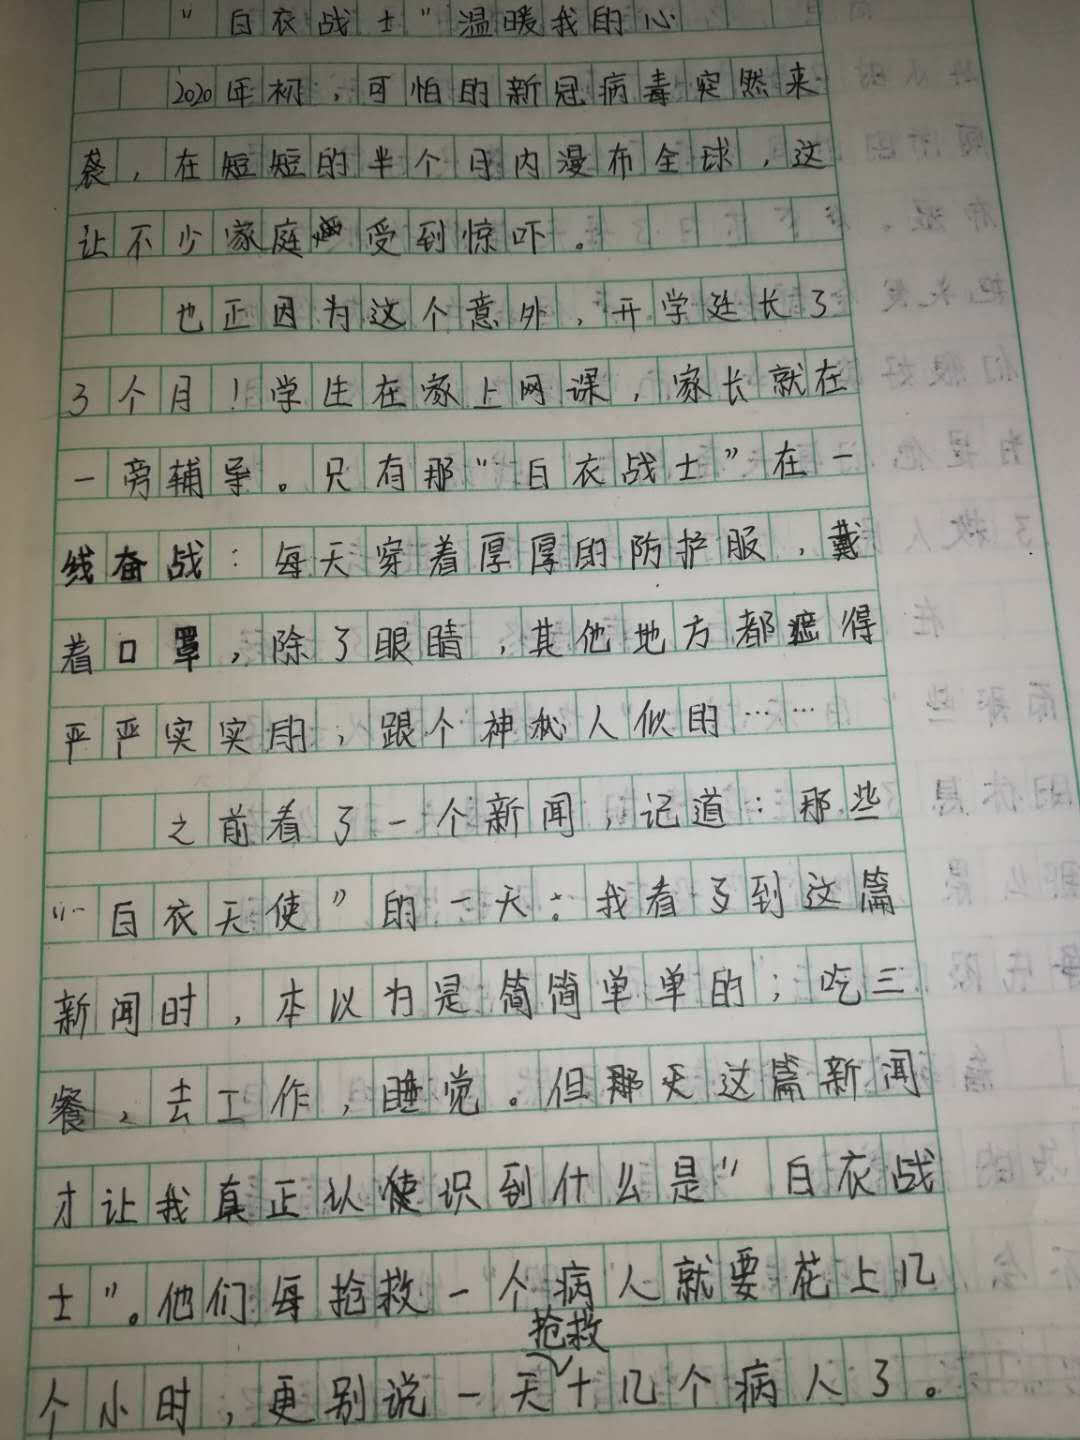 “白衣战士”温暖我的心
2020年初，可怕的新冠病毒突然来
袭，在短短的半个月内漫布全球，这
让不少家庭受到惊吓。
也正因为这个意外，开学延长了
3个月！学生在家上网课，家长就在
一旁辅导。只有那“白衣战士”在一
线奋战：每天穿着厚厚的防护服，戴
着口罩，除了眼睛，其他地方都遮得
严严实实的，跟个神秘人似的……
之前看了一个新闻，记道：那些
“白衣天使”的一天：我看到这篇
新闻时，本以为是简简单单的；吃三
餐，去工作，睡觉。但那天这篇新闻
才让我真正认识到什么是”白衣战
士”。他们每抢救一个病人就要花上几
抢救
个小时，更别说一天十几个病人了。